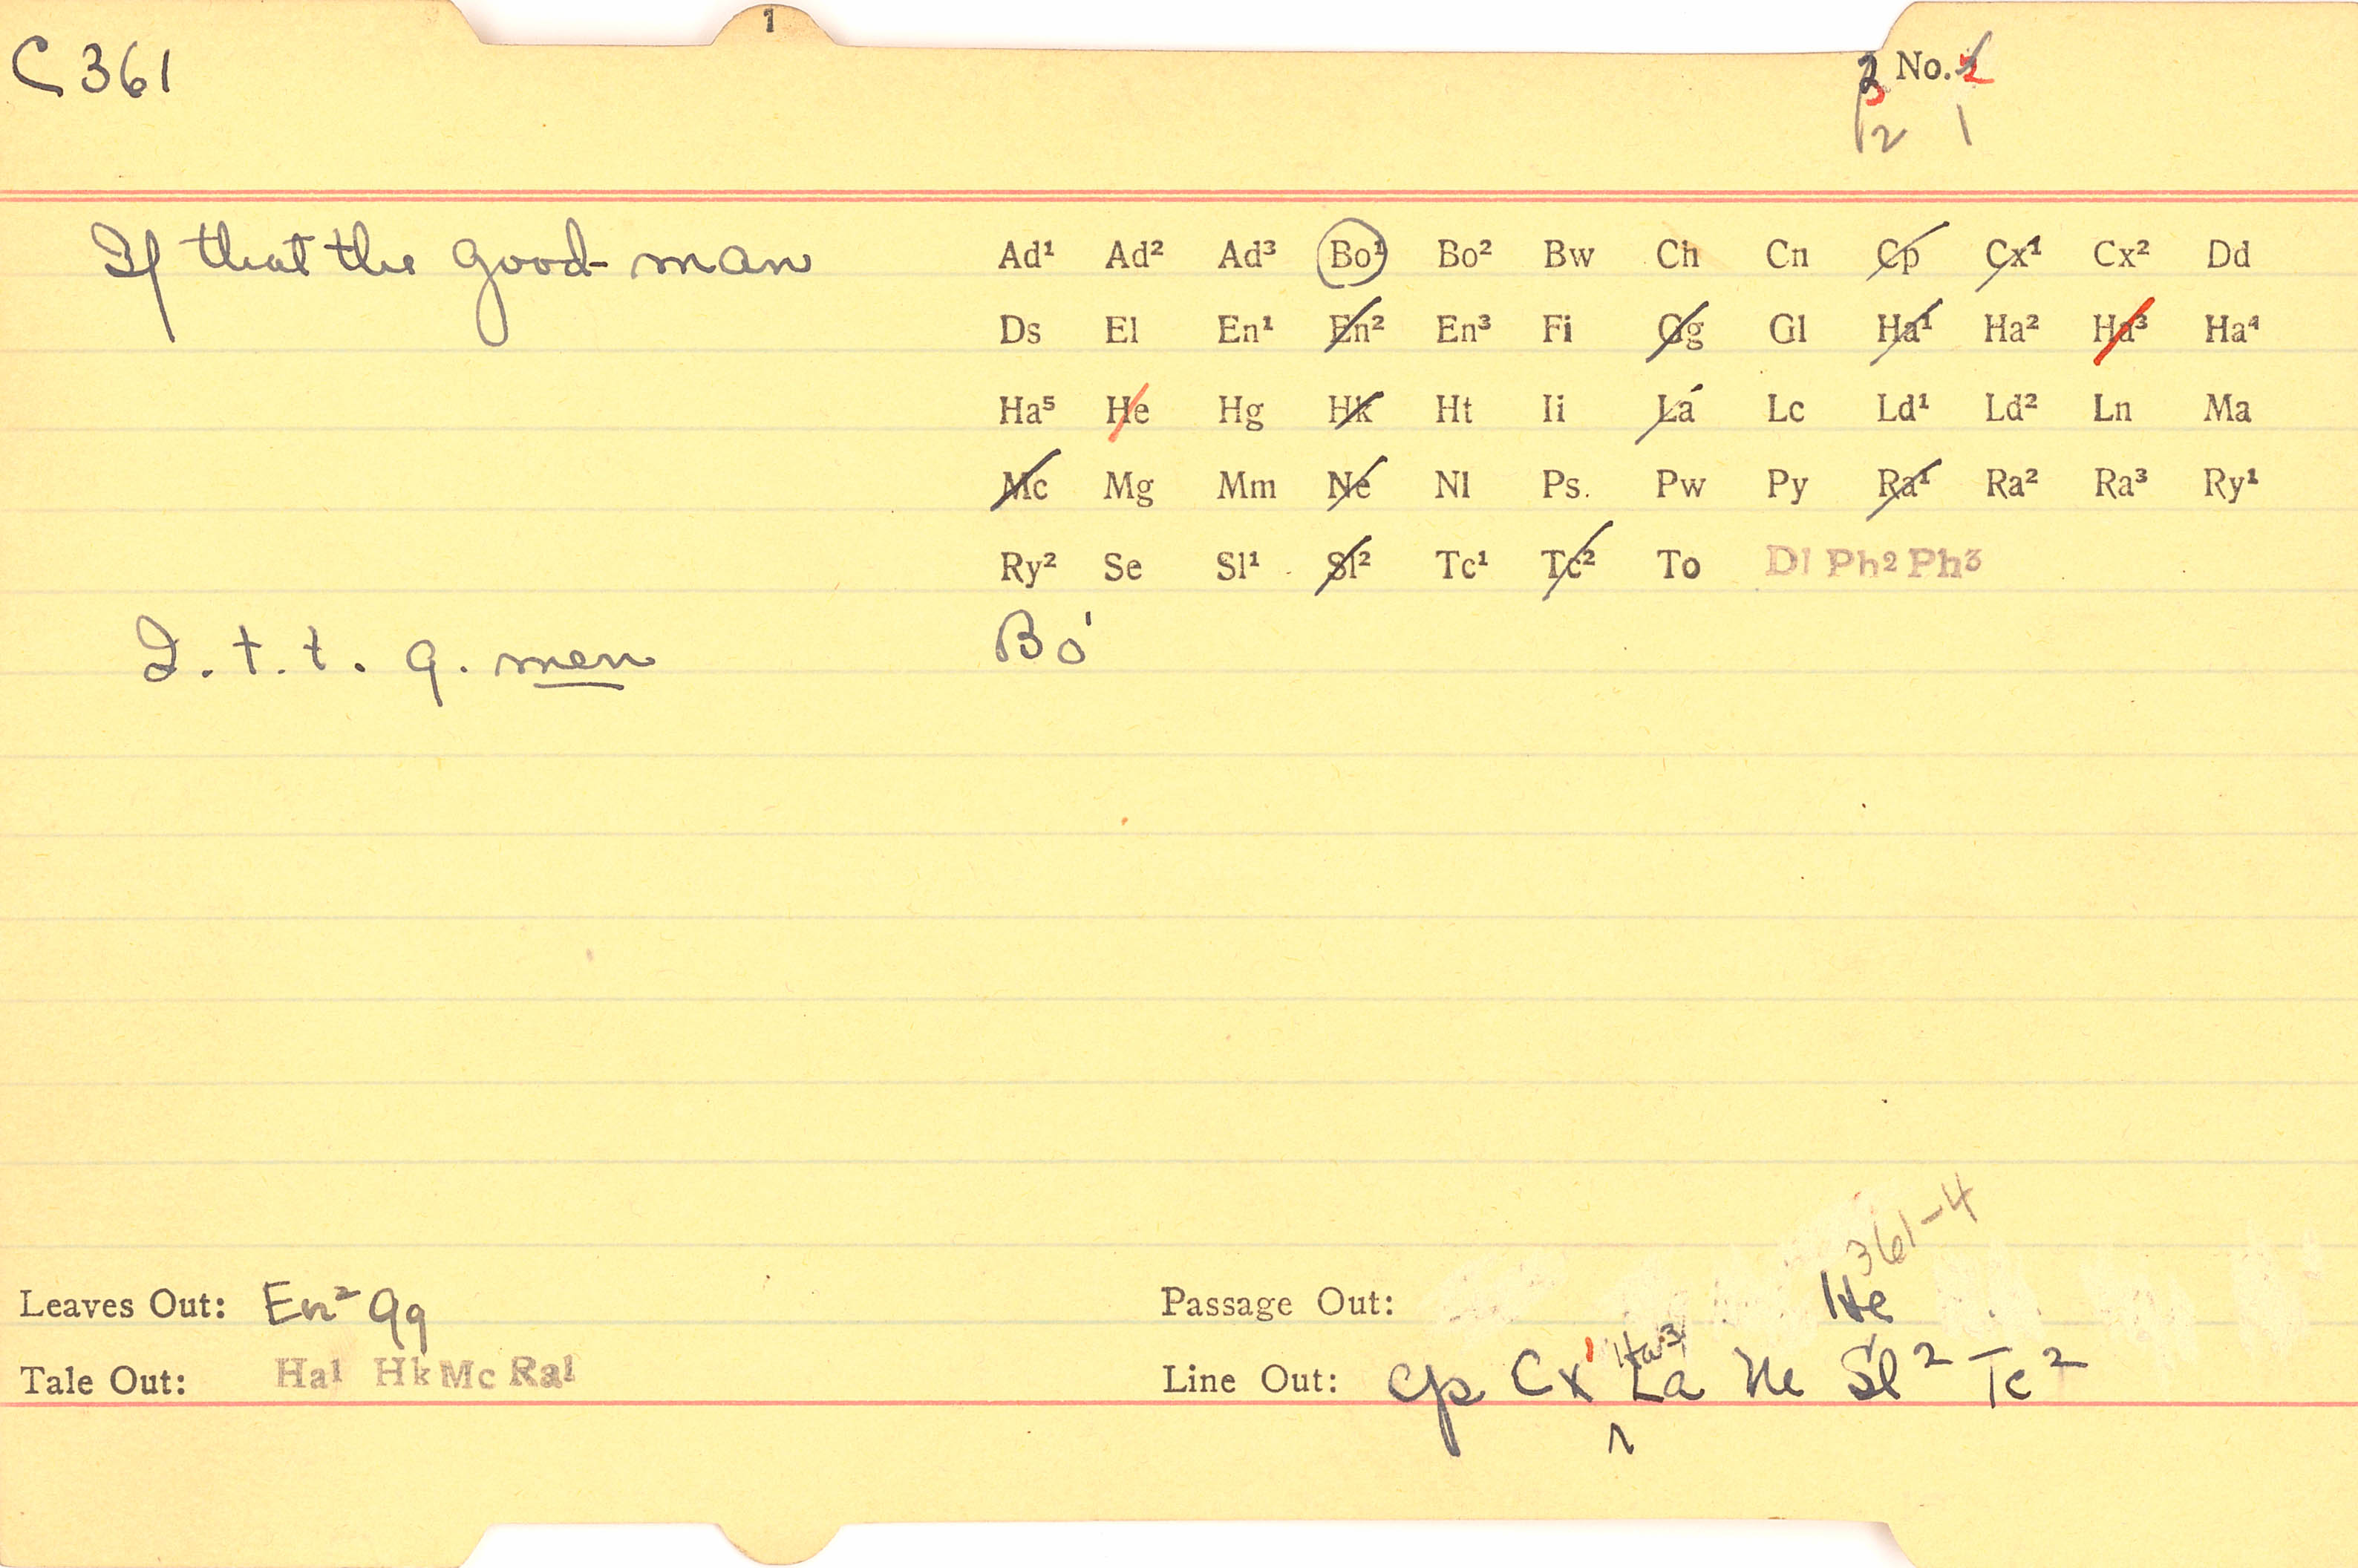 1
C 361
No.
2 1
If that the good-man
Ad¹ Ad² Ad³ Bo¹ Bo² Bw Ch Cn Cp Cx¹ Cx² Dd
Ds El En¹ En² En³ Fi Gg Gl Ha¹ Ha² Ha³ Ha⁴
Ha⁵ He Hg Hk Ht Ii La Lc Ld¹ Ld² Ln Ma
Mc Mg Mm Ne Nl Ps. Pw Py Ra¹ Ra² Ra³ Ry¹
Ry² Se Sl¹ Sl² Tc¹ Tc² To Dl Ph² Ph³
I. t. t. g. men Bo¹
361-4
Leaves Out: En² Gg Passage Out: He
Ha³
Tale Out: Ha¹ Hk Mc Ra¹ Line Out: Cp Cx¹ La Ne Sl² Tc²